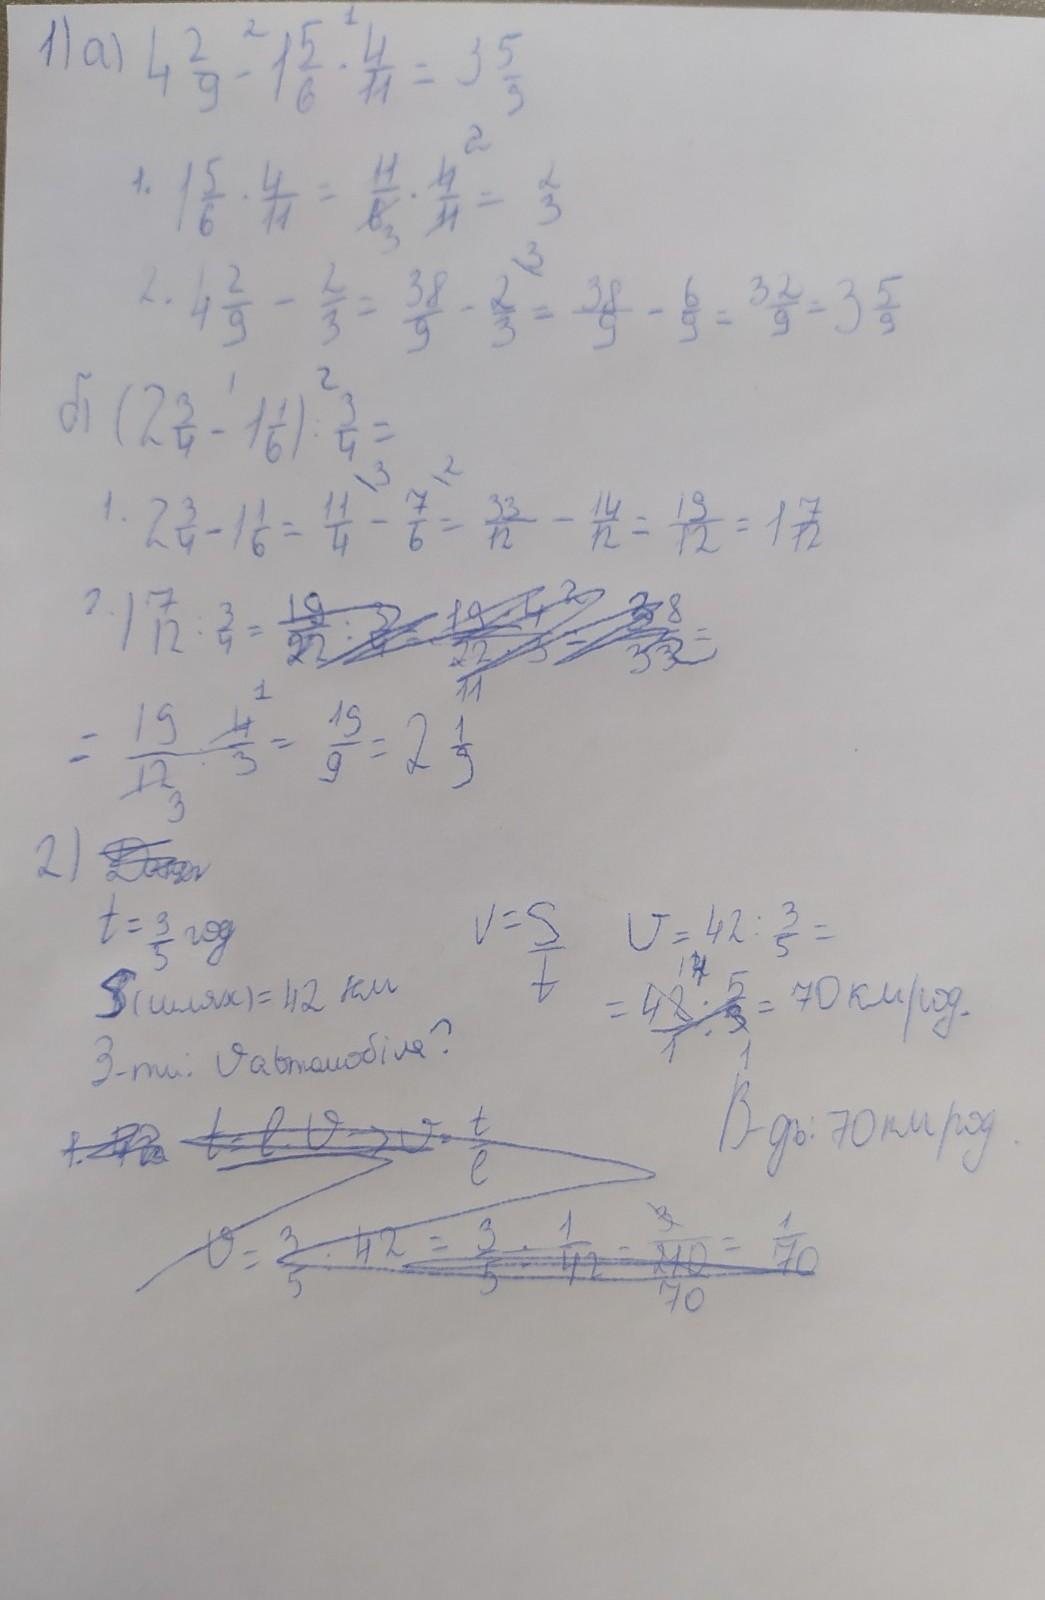 1) а) 4 2/9 - 1 5/6 · 4/11 = 3 5/9
1. 1 5/6 · 4/11 = 11/6 · 4/11 = 2/3
2. 4 2/9 - 2/3 = 38/9 - 2/3 = 38/9 - 6/9 = 32/9 = 3 5/9
б) (2 3/4 - 1 1/6) : 3/4 =
1. 2 3/4 - 1 1/6 = 11/4 - 7/6 = 33/12 - 14/12 = 19/12 = 1 7/12
2. 1 7/12 : 3/4 =
= 19/12 · 4/3 = 19/9 = 2 1/9
2)
t = 3/5 год
S (шлях) = 42 км
З-ти: V автомобіля?
V = S/t
V = 42 : 3/5 =
= 42/1 · 5/3 = 70 км/год.
В-дь: 70 км/год.
t = l · V => V = t/l
V = 3/5 : 42 = 3/5 · 1/42 = 3/210 = 1/70